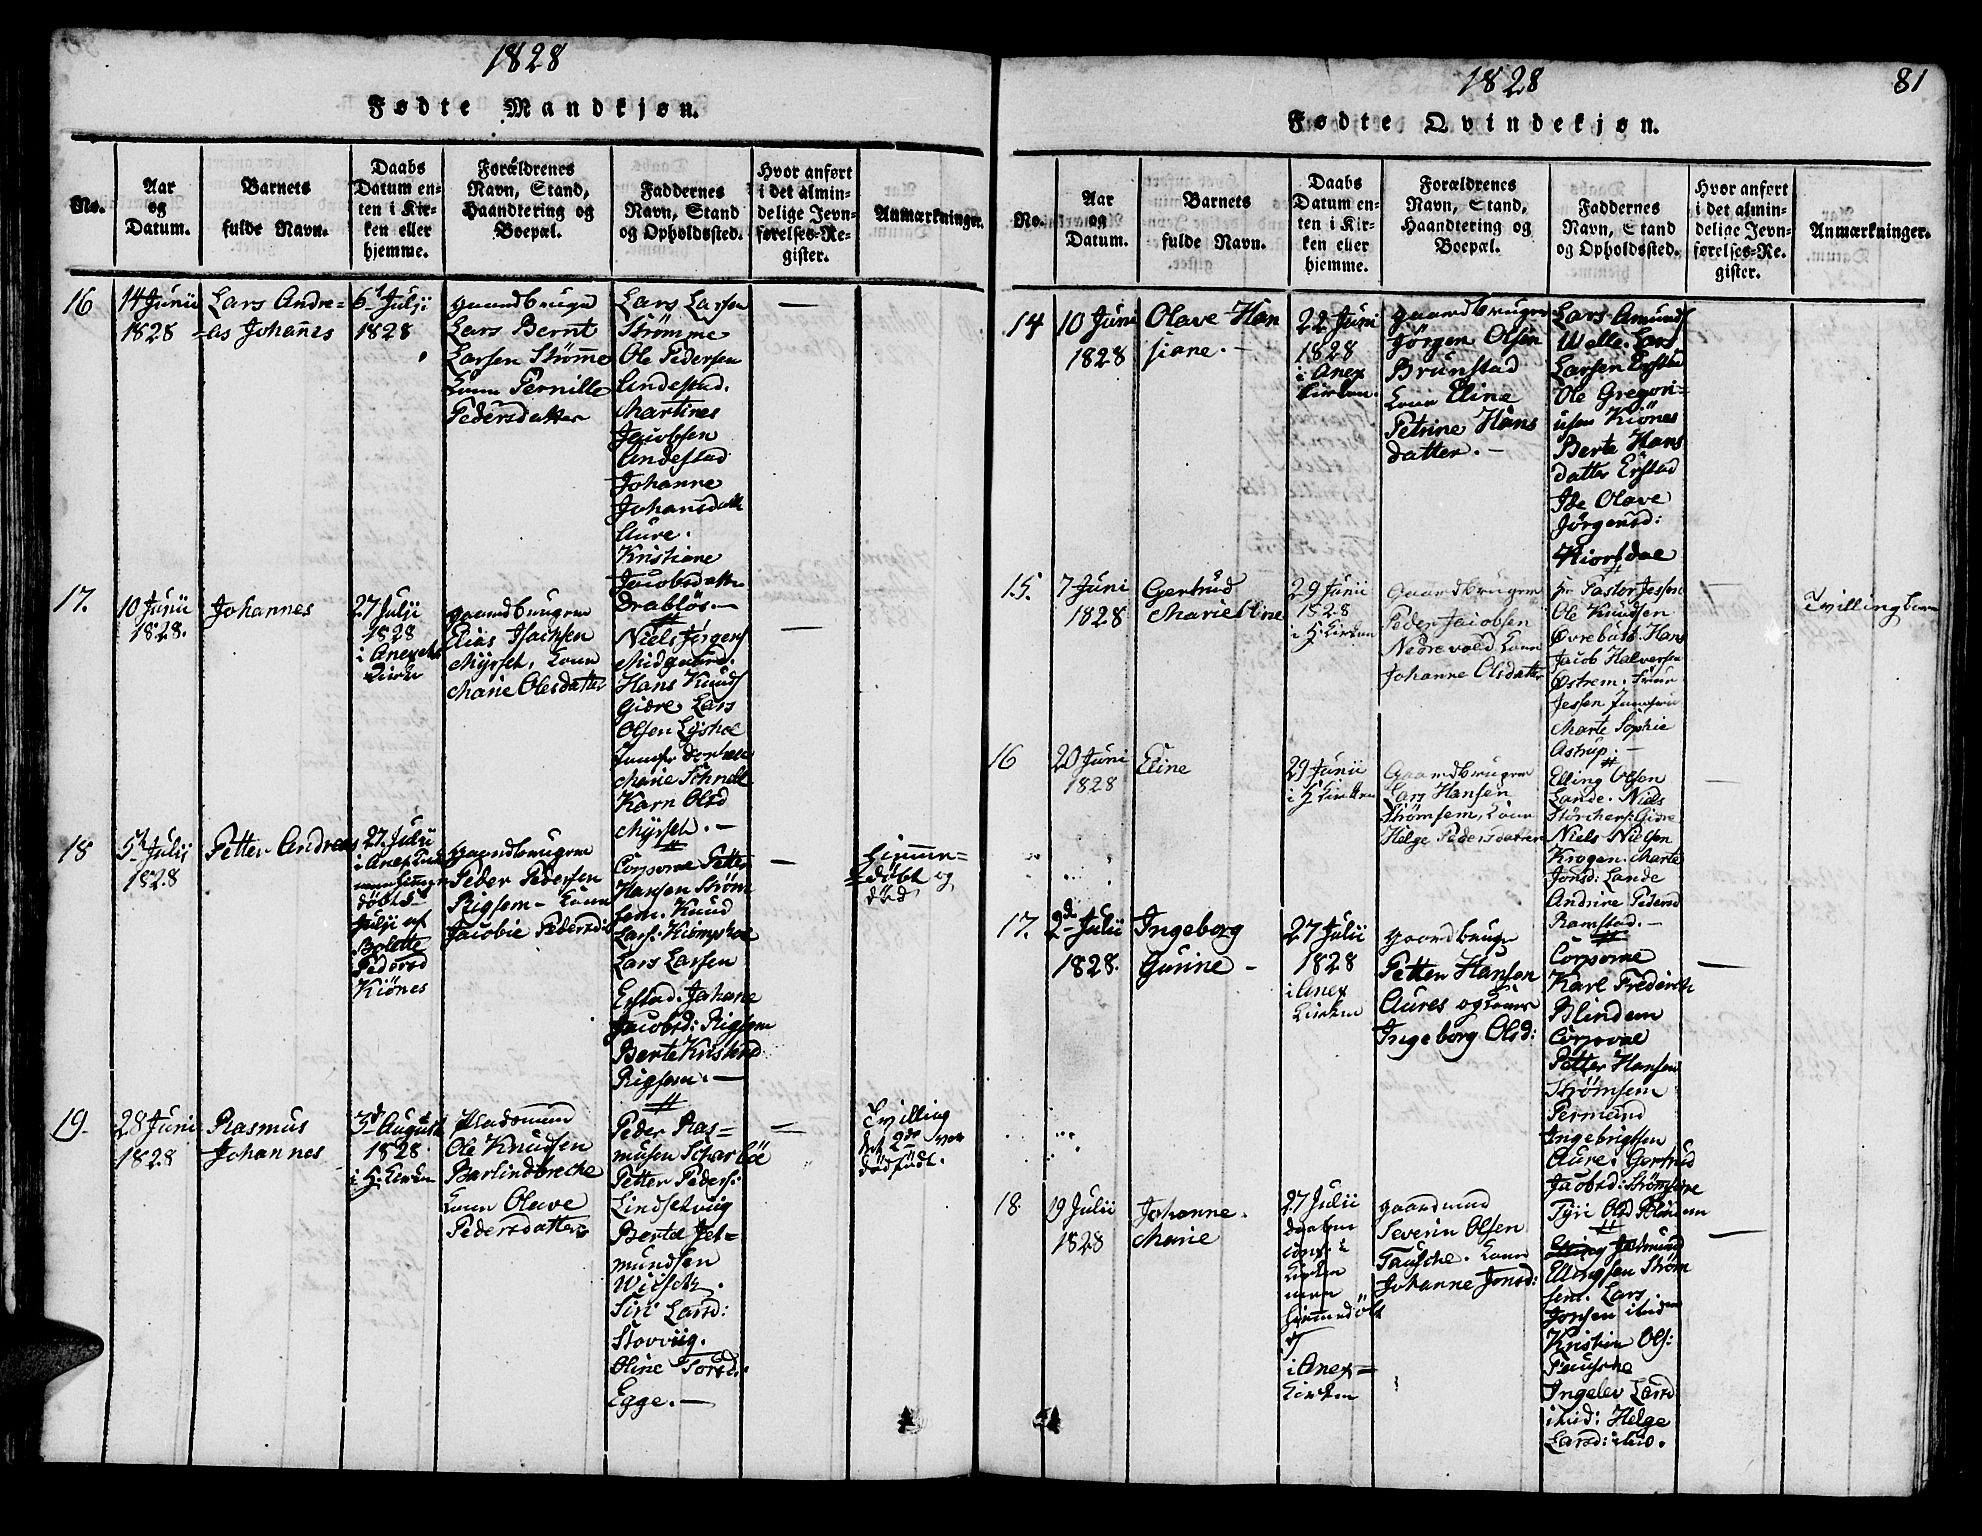 1828
Fødte Mandkjøn.
No.
Aar
og
Datum.
Barnets
fulde Navn.
Daabs
Datum en-
ten i Kir-
ken eller
hjemme.
Forældrenes
Navn, Stand,
Haandtering og
Boepæl.
Faddernes
Navn, Stand
og Opholdssted.
Hvor anført
i det almin-
delige Jevn-
førelses-Re-
gister.
Anmærkninger.
16
14 Junii
1828
Lars Andre=
=as Johañes
6t Julji
1828
gaardbruger
Lars Bernt
Larsen Strømme
Kone Pernille
Pedersdatter
Lars Larsen
Strømme
Ole Pedersen
Andestad.
Martines
Jacobsen
Andestad
Johanne
Johansdatt
Aure.
Kristiane
Jacobsdatter
Drabløs
—
17.
10 Junii
1828.
Johannes
27 Julji
1828
i Anexets
Kirke
gaardbruger
Elias Isachsen
Myrset, Kone
Marie Olesdatter
Niels Jørgens
Midgaard.
Hans Knuds
Giære Lars
Olsen Lyshol
Marie Schnell
Karn Olsd
Myrset. —
—
18
5t Julii
1828
Petter Andreas
27 Julii
i Anex Kirk
døbt 5
Julji af
Bolette
Pedersd
Kiönes
gaardbruger
Peder Pedersen
Rigsem - Kone
Jacobie Pedersd
Corporne Petter
Hansen Strøm
sem. Knud
Lars: Kiemphol
Lars Larsen
Erstad. Johane
Jacobsd: Rigsem
Berte Kristend
Rigsem. —
—
Hjemme=
=døbt og
død
19.
28 Juni
1828
Rasmus
Johannes
3d August
1828
i H. Kirken
Huusmand
Ole Knudsen
Barlindbrecke
Kone Olave
Pedersdatter
Peder Ras=
musen Scharböe
Petter Peders:
Lindsetviig
Bertel Jet=
mundsen
Siri Larsd:
Stovviig.
Oline Torsd:
Egge. —
—
Tvilling
det 2de var
dødfødt.
1828
81
Fødte Qvindekjøn.
No.
Aar
og
Datum.
Barnets
fulde Navn.
Daabs
Datum en-
ten i Kir-
ken eller
hjemme.
Forældrenes
Navn, Stand,
Haandtering og
Boepæl.
Faddernes
Navn, Stand
og Opholdssted.
Hvor anført
i det almin-
delige Jevn-
førelses-Re-
gister.
Anmærkninger.
14
10 Juni
1828
Olave Han
siane. —
22 Juni
1828
i Anex
Kirken.
gaardbruger
Jörgen Olsen
Brunstad
Kone Eline
Petrine Hans
datter. —
Lars Amunds
Welle. Lars
Larsen Erstad
Ole Gregori=
usen Kiönes
Berte Hans
datter Erstad
Ide Olave
Jörgensd:
Hiorsdal
15.
7 Juni
1828
Gertrud
Marie Eline
29 Junii
1828
i H. Kirken
Gaardbruger
Peder Jacobsen
Nedrevold Kone
Johanne Olsdatter
Hr Pastor Jessen
Ole Knudsen
Øvrebust Hans
Jacob Halversen
Østrem. Frue
Jessen Jomfrue
Marte Sophie
Astrup. —
Tvillingbarn
16
20 Juni
1828
Eline
29 Junii
i H. Kirken
Gaardbruger
Lars Hansen
Strømsem, Kone
Helge Pedersdatter
Elling Olsen
Lande. Niels
Störchers: Giære
Niels Nielsen
Krogen. Marte
Jonsd: Lande
Andrine Pedersd
Ramstad. —
—
17.
2d Julii
1828.
Ingeborg
Gurine —
27 Julii
1828
i Anex
Kirken
gaardbruger
Petter Hansen
Aures og Kone
Ingeborg Olsd:
Corporne
Karl Frederich
Blindem
Corporne
Petter Hansen
Strømsem
Permund
Ingebrigtsen
Aure. Gertrud
Jacobsd: Strømsem
Tyri Olsd Blindem
—
18.
19 Julii
1828
Johanne.
Marie
27 Julii
daaben
conf. i
Kirken
men
hjemmedöbt
i Anex=
Kirken
gaardmand
Severin Olsen
Tausche. Kone
Johanne Jonsd:
Jetmund
Ellingsen Strøm
sem. Lars
Jonsen ibidem
Kristin Ols:
Tausche
Ingelev Larsd
ibid: Helge
Larsd: ibid.
—